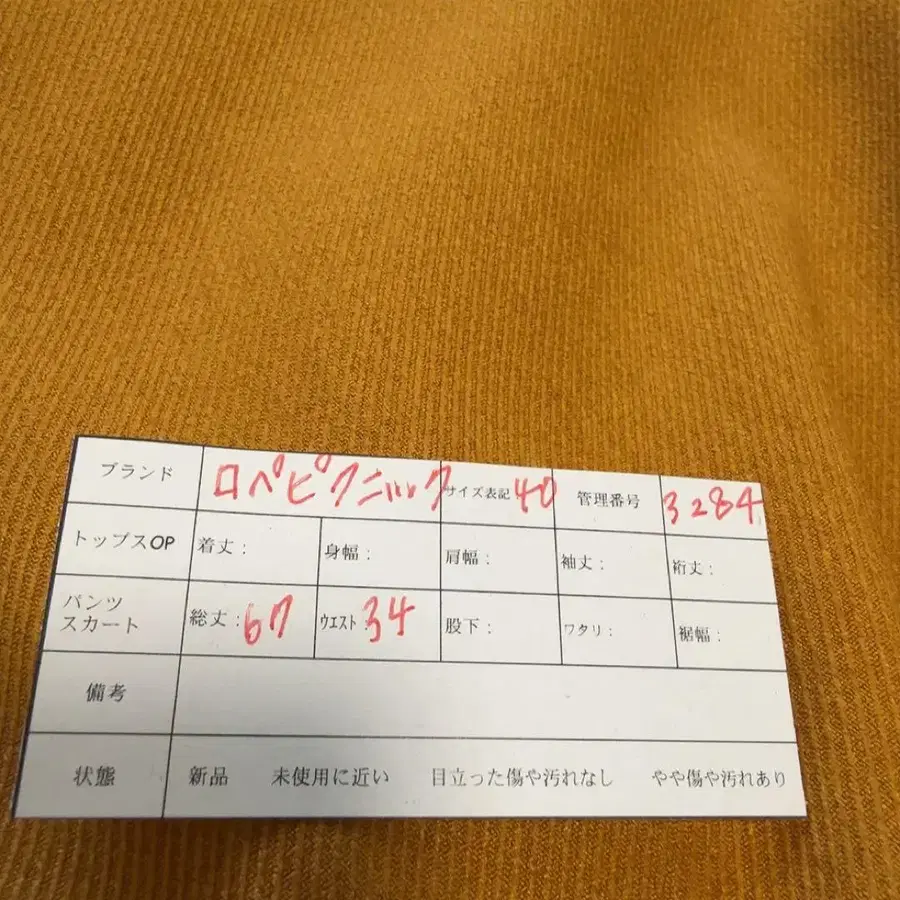 ブランド ロペピクニック サイズ表記 40 管理番号 3284
トップスOP 着丈： 身幅： 肩幅： 袖丈： 裄丈：
パンツ
スカート 総丈：67 ウエスト 34 股下： ワタリ： 裾幅：
備考
状態 新品 未使用に近い 目立った傷や汚れなし やや傷や汚れあり